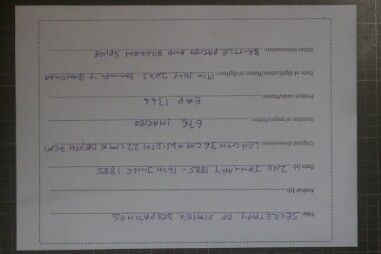 Title: SECRETARY OF STATES DESPATCHES
Author (s):
Date (s): 2nd JANUARY 1885 - 16TH JUNE 1885
Original dimensions: LENGTH 36 CM X WIDTH 22 CM X DEPTH 7CM
Number of pages/folios: 676 IMAGES
Project code/Name: EAP 1366
Date of digitization/Name of digitizer: 19th JULY 2023
Other information: BRITTLE PAPER AND BROKEN SPINE